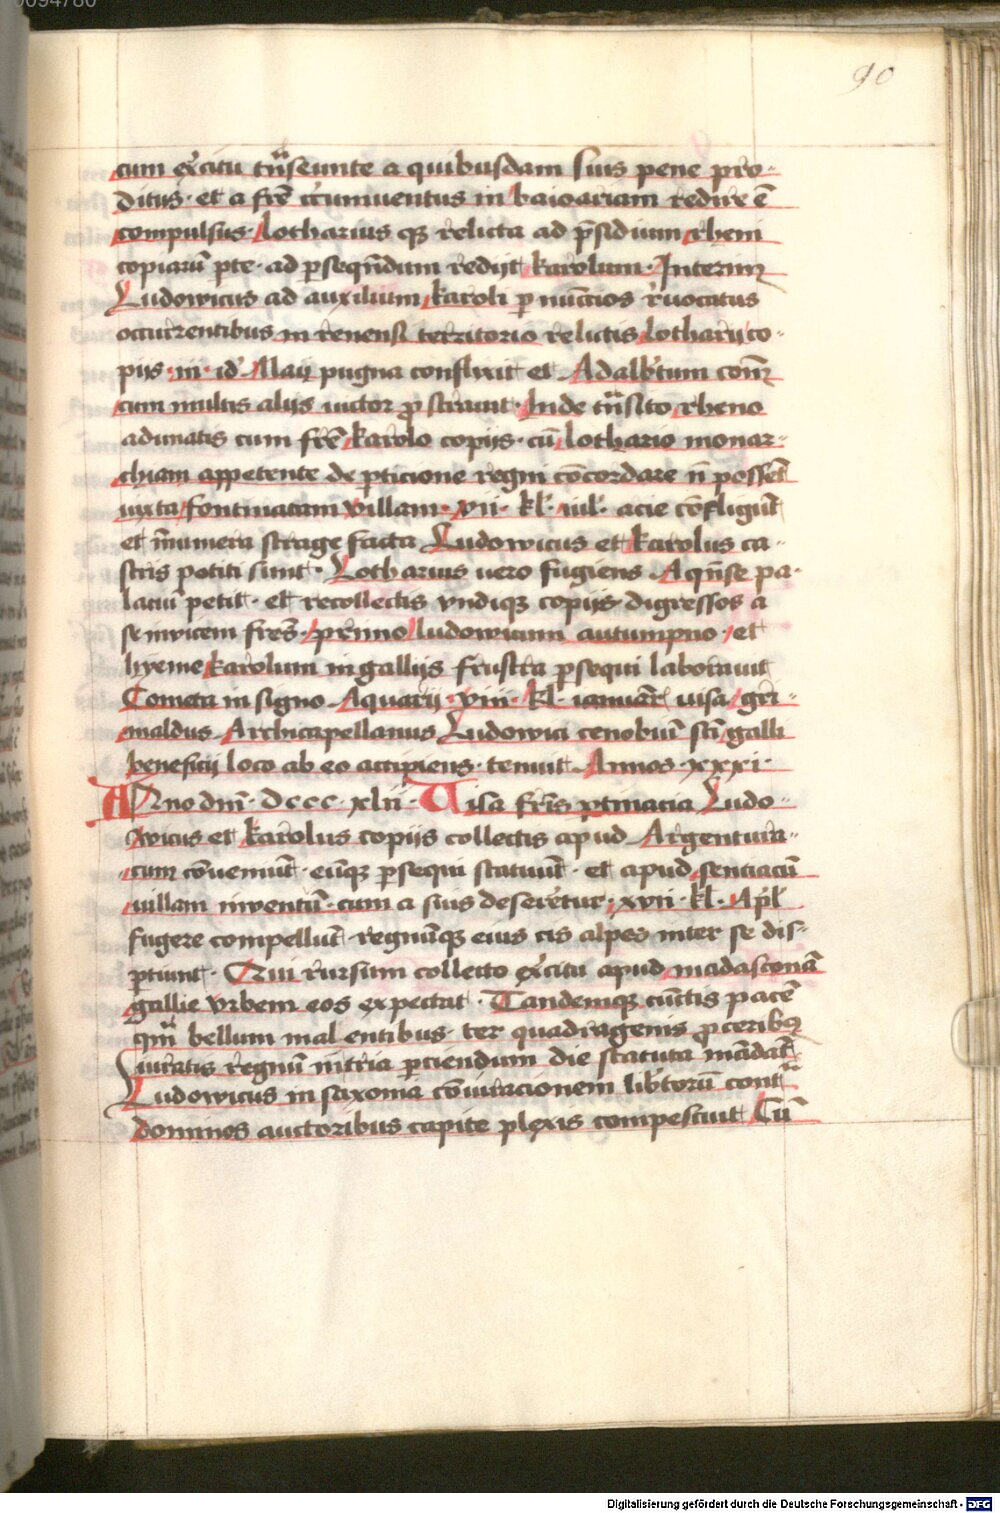 0094780
90
cum exͬcitu tnͣseunte a quibusdam suis pene pro-
ditus· et a frē cͬcumuentus in baioariam redire ē
compulsus· Lotharius qꝫ relicta ad p̄sidium rheni
copiarū ꝑte· ad ꝑseqn̄dum redijt karolum· Interim
Ludowicus ad auxilium karoli ꝑ nūctios rͬuocatus
occurrentibus in renensi territorio relictis Lotharij co-
pijs· iii· id' Maij pugna conflixit et Adalbͬtum com̄
cum multis alijs uictor ꝓstrauit· Inde tnͣsito rheno
adunatis cum frē karolo copijs· cū Lothario monar-
chiam appetente de ꝑticione regni cōcordare n̄ possēt
iuxta fontinatam villam· vii· kl' iul'· acie cōfligūt
et īnumera strage facta Ludowicus et karolus ca-
stris potiti sunt· Lotharius uero fugiens Aqn̄se pa-
laciū petit· et recollectis vndiqꝫ copijs digressos a
se inuicem frēs· primo Ludowicum autumpno· et
hyeme karolum in gallijs frustra ꝑsequi laborauit
Cometa in signo Aquarij· viii· kl' ianuar̄ uisa gri-
maldus Archicapellanus Ludowici cenobiū scī galli
beneficij loco ab eo accipiens· tenuit Annos· xxxi·
ANno dnī· Dccc· xlii· Uisa frīs ꝑtinacia Ludo-
wicus et karolus copijs collectis apud Argentura-
cum cōueniūt· eūqꝫ ꝑsequi statuūt· et apud sentiacū
uillam inventū· cum a suis deserͬetur· xvii· kl'· Apͬl'
fugere compellūt· regnūqꝫ eius cis alpes inter se dis-
ꝑtiunt· Qui rursum collecto exͬcitu apud madasconā
gallie vrbem eos expectat· Tandemqꝫ cūctis pacē
qm̄ͣ bellum mal entibus· ter quadragenis ꝓceribꝫ
iuratis regnū in tria ꝑciendum die statuta mādāt
Ludowicus in saxonia cōiuracionem libͬtorū contͣ
dominos auctoribus capite plexis compescuit Cū
Digitalisierung gefördert durch die Deutsche Forschungsgemeinschaft - DFG